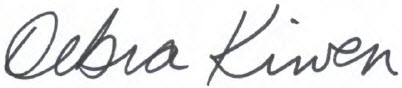 Debra Kirwen